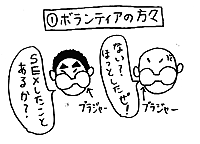 ①ボランティアの方々
ない?
ほっとしたぜ!
ブラジャー
SEXしたこと
あるか?
ブラジャー